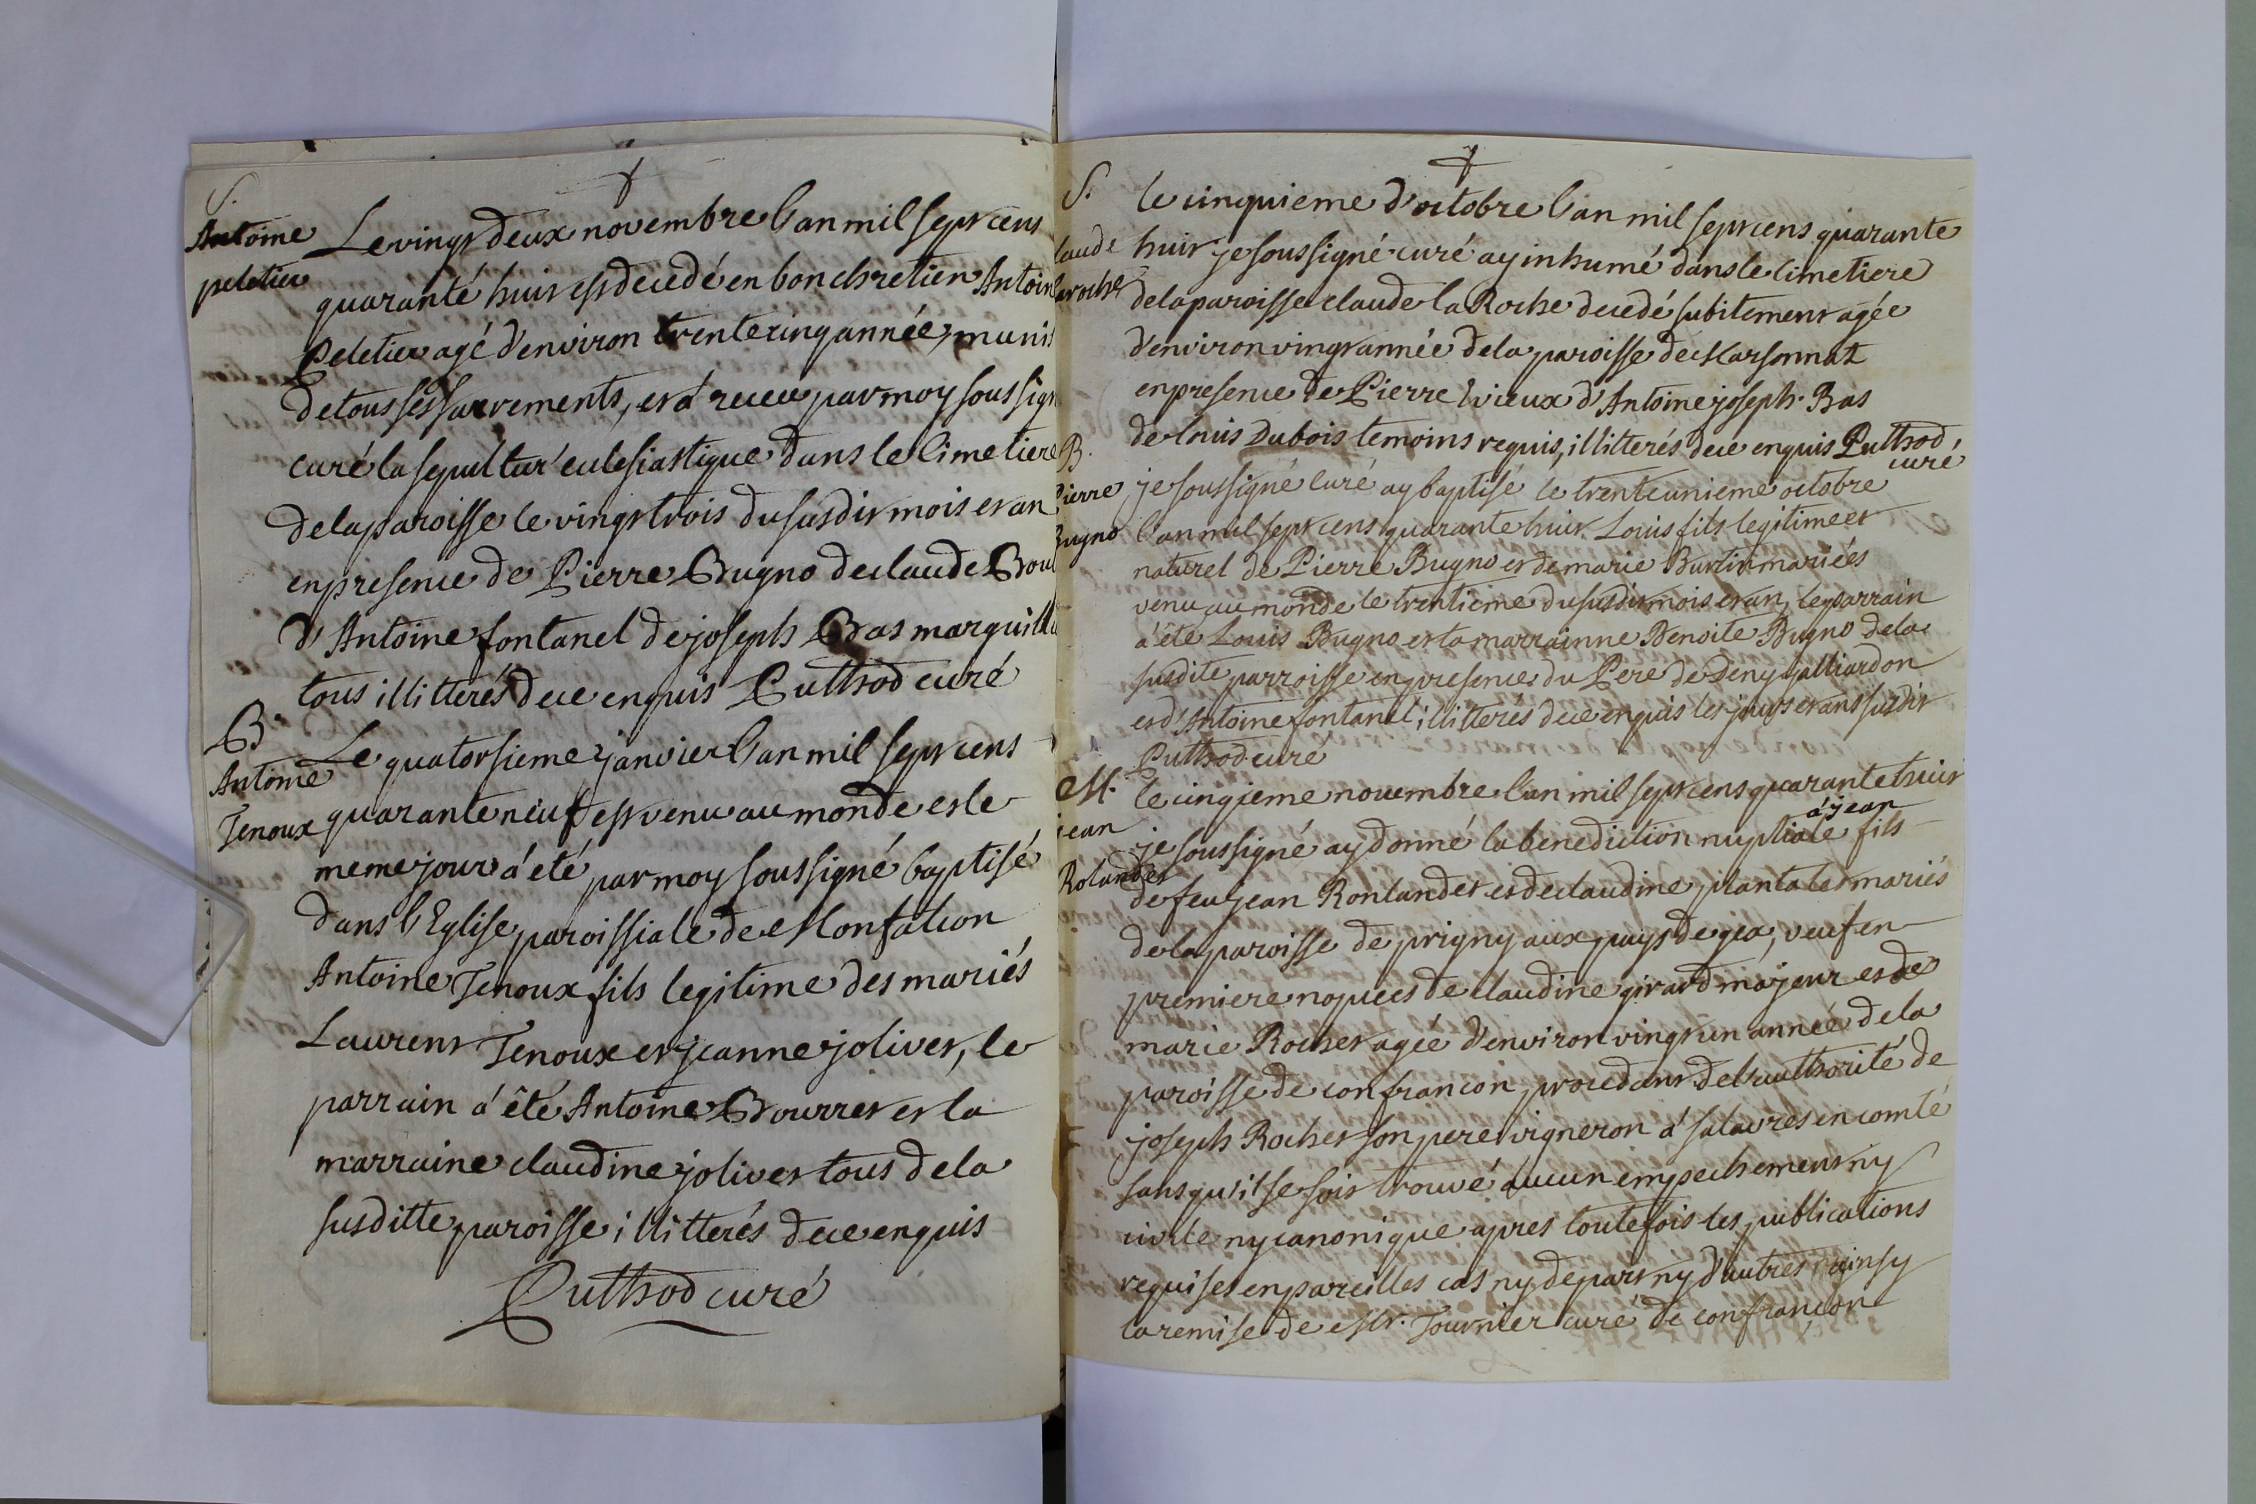 S.
Antoine
peletier
Le vingt deux novembre l'an mil sept cens
quarante huit est decedé en bon chretien Antoin
Peletier agé d'environ trente cinq année, munis
de tous ses sacrements, et a receu par moy soussign
curé la sepultur eclesiastique dans le cimetiere
de la paroisse le vingt trois du susdit mois et an
en presence de Pierre Bugno de claude Bou
d'Antoine fontanel de joseph Bas marguill
tous illitterés de ce enquis Puthod curé
B.
Antoine
Jenoux
Le quatorsieme janvier l'an mil sept cens
quarante neuf est venu au monde et le
meme jour a été par moy soussigné baptisé
dans l'Eglise paroissiale de Monfalcon
Antoine Jenoux fils legitime des mariés
Laurent Jenoux et jeanne jolivet, le
parrain a été Antoine Bourret et la
marraine claudine jolivet tous de la
susditte paroisse illitterés de ce enquis
Puthod curé
S.
laude
laroche
le cinquieme d'octobre l'an mil sept cens quarante
huit je soussigné curé ay inhumé dans le cimetiere
de la paroisse claude la Roche decedé subitement agée
d'environ vingt année de la paroisse de Marsonnat
en presence de Pierre Vieux d'Antoine joseph Bas
de louis Dubois temoins requis, illitterés de ce enquis Puthod,
curé
B.
Pierre
Bugno
je soussigné curé ay baptisé le trente unieme octobre
l'an mil sept cens quarante huit Louis fils legitime et
naturel de Pierre Bugno et de marie Burtin mariées
venu au monde le trentieme du susdit mois et an, le parrain
a été Louis Bugno et la marrainne Benoite Bugno de la
susdite parroisse en presences du Pere de Deny galliardon
et d'Antoine fontanel illitterés de ce enquis les jours et an susdit
Puthod curé
M.
jean
Rolandet
le cinqieme novembre l'an mil sept cens quarante huit
je soussigné ay donné la benediction nuptiale à jean fils
de feu jean Ronlandet et de claudine plantalet mariés
de la paroisse de prigny aux pays de gex, veuf en
premiere nopces de claudine girard majeur et de
marie Rochet agée d'environ vingt un année de la
paroisse de confrancon, procedant de l'authorité de
joseph Rochet son pere vigneron a salavres en comté
sans qu'il se soit trouvé aucun empechement ny
civile ny canonique apres toutefois les publications
requises en pareilles cas ny de part ny d'autres, ainsy
la remise de Mr. Tournier curé de confrançon